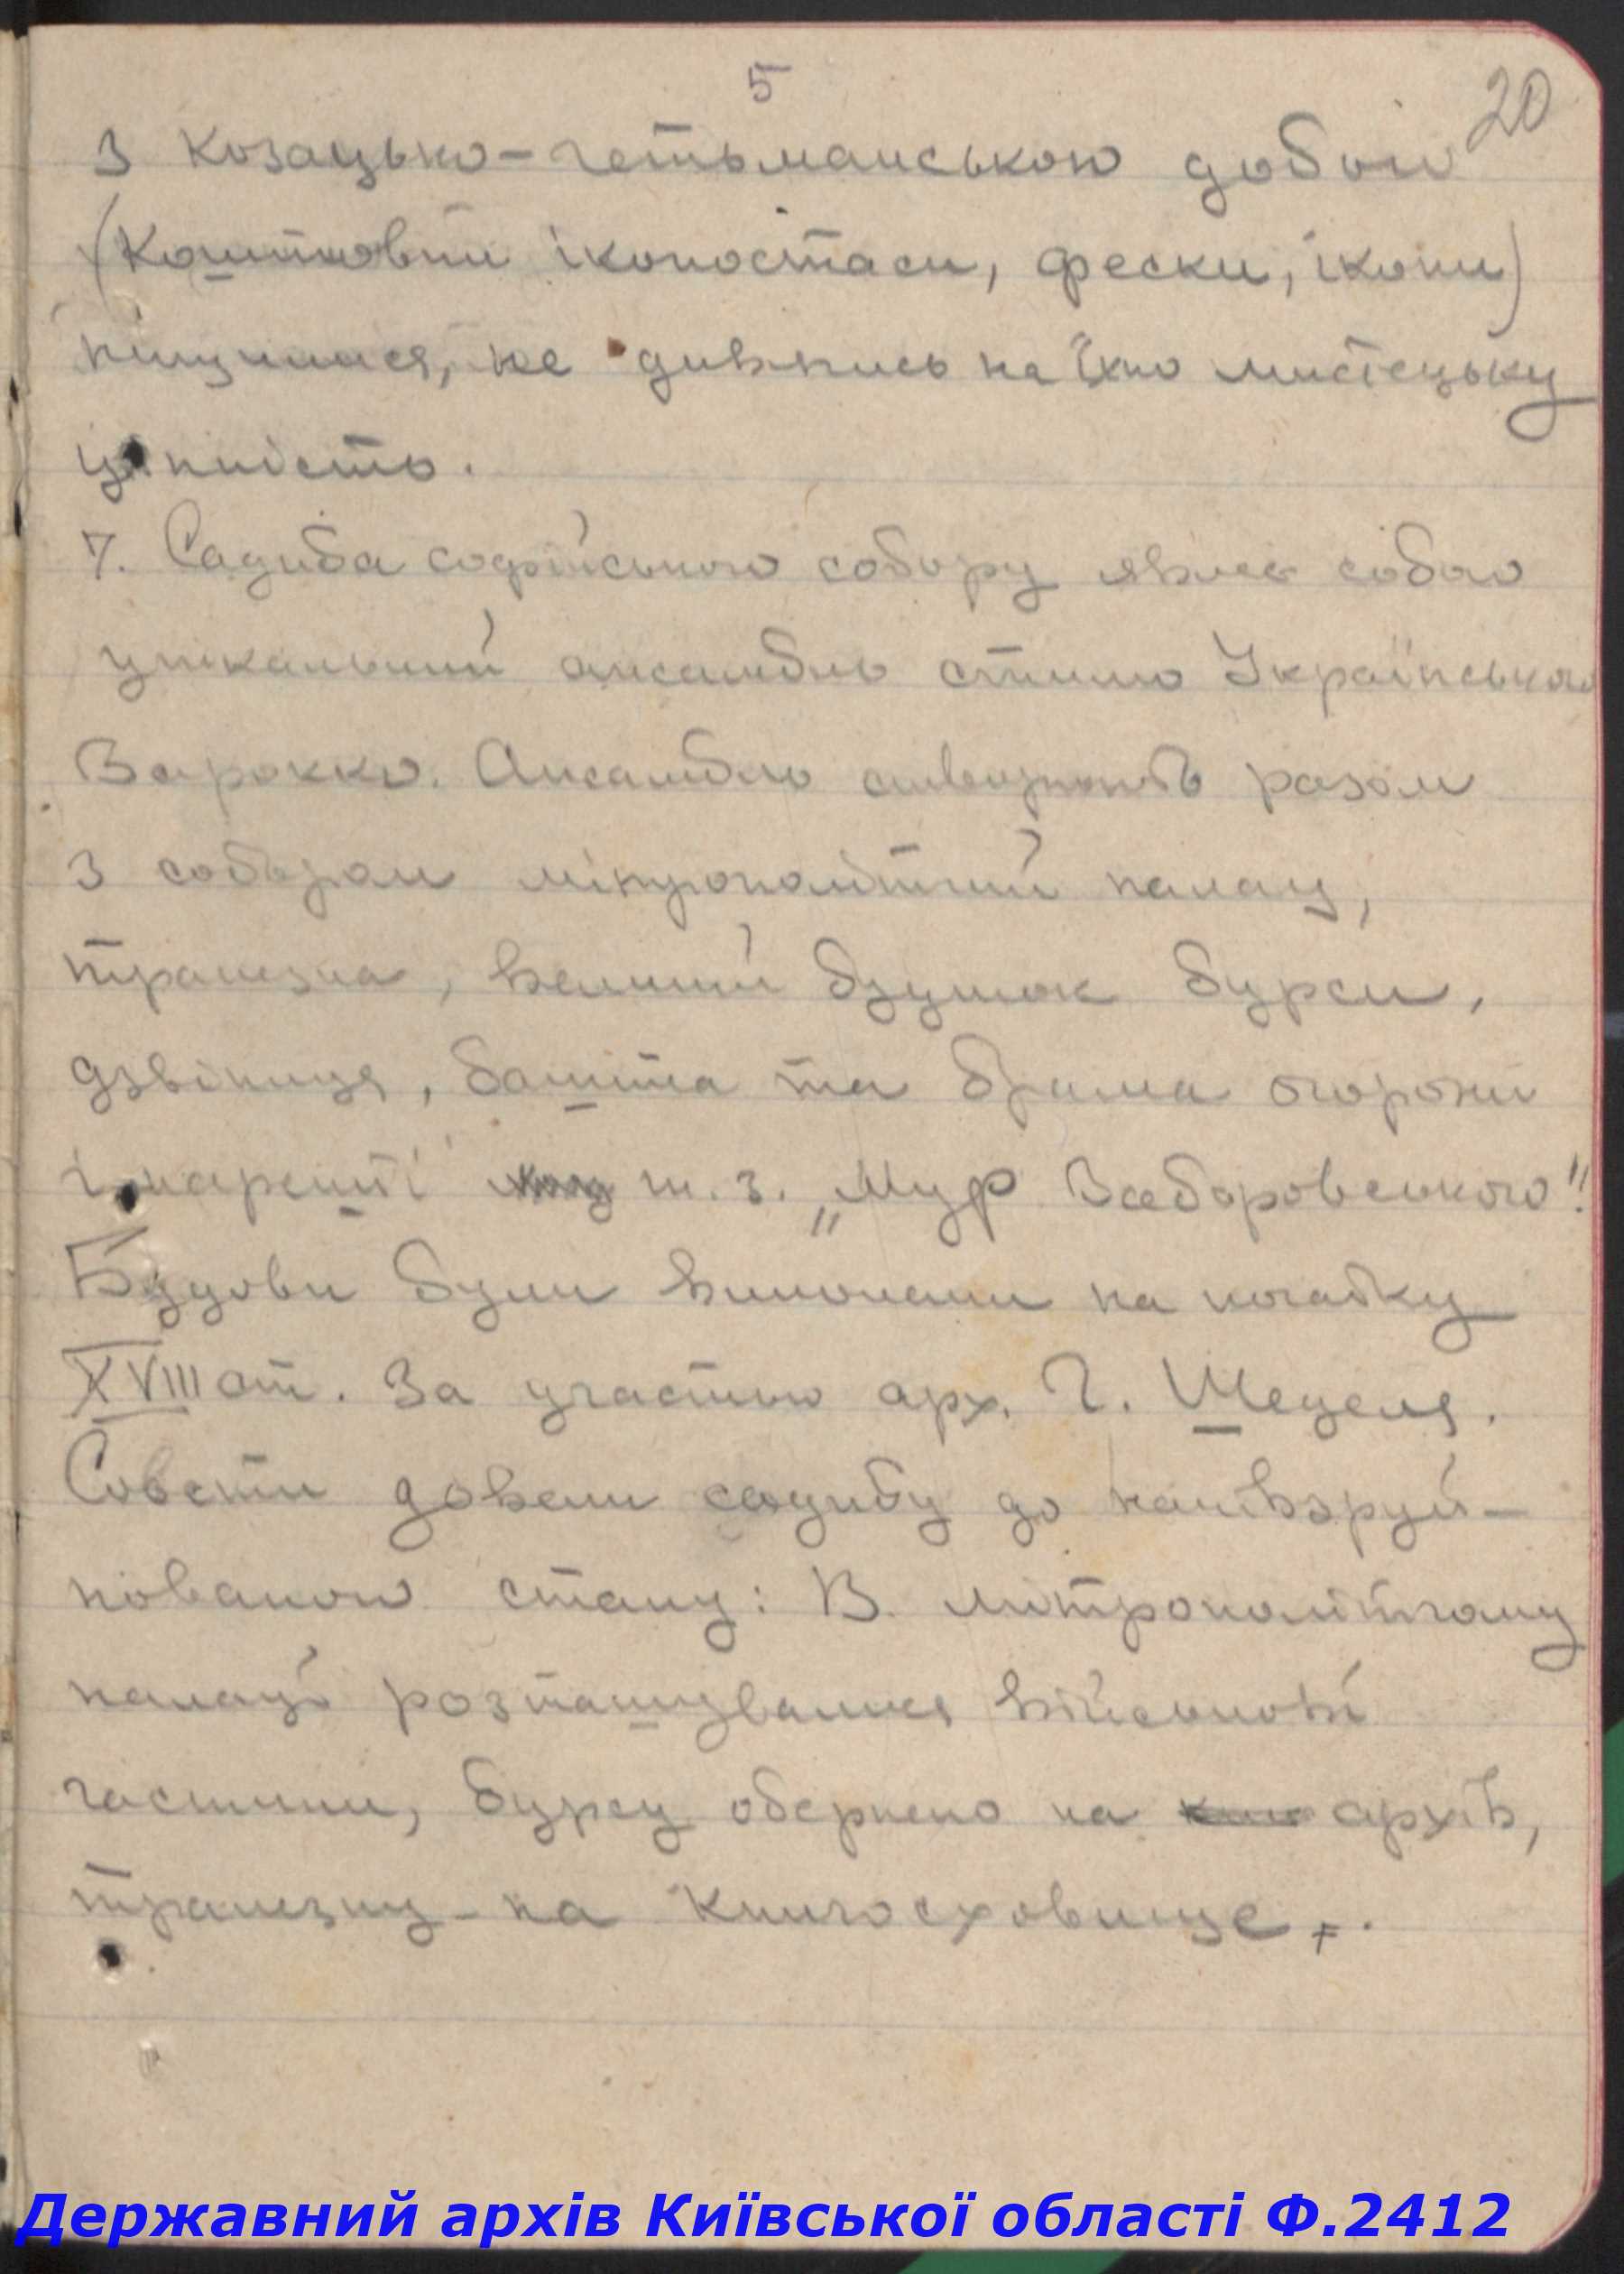 5
20
з козацько-гетьманською добою
(Коштовни іконостаси, фески, ікони)
нищилися, не дивлись на їхню мистецьку
цінність.
7. Садиба софійського собору являє собою
унікальний ансамбль стилю Українського
Барокко. Ансамбль створюють разом
з собором мітрополітчий палац,
трапезна, великий будинок бурси,
дзвіниця, башта та брама огорожи
і нарешті т. з. „Мур Заборовського".
Будови були виконани на початку
XVIII ст. За участью арх. Г. Шеделя.
Совети довели садибу до напівзруй-
нованого стану: В мітрополітчому
палаці розташувалися військові
частини, бурсу обернено на архів,
трапезну - на книгосховище.
Державний архів Київської області Ф.2412